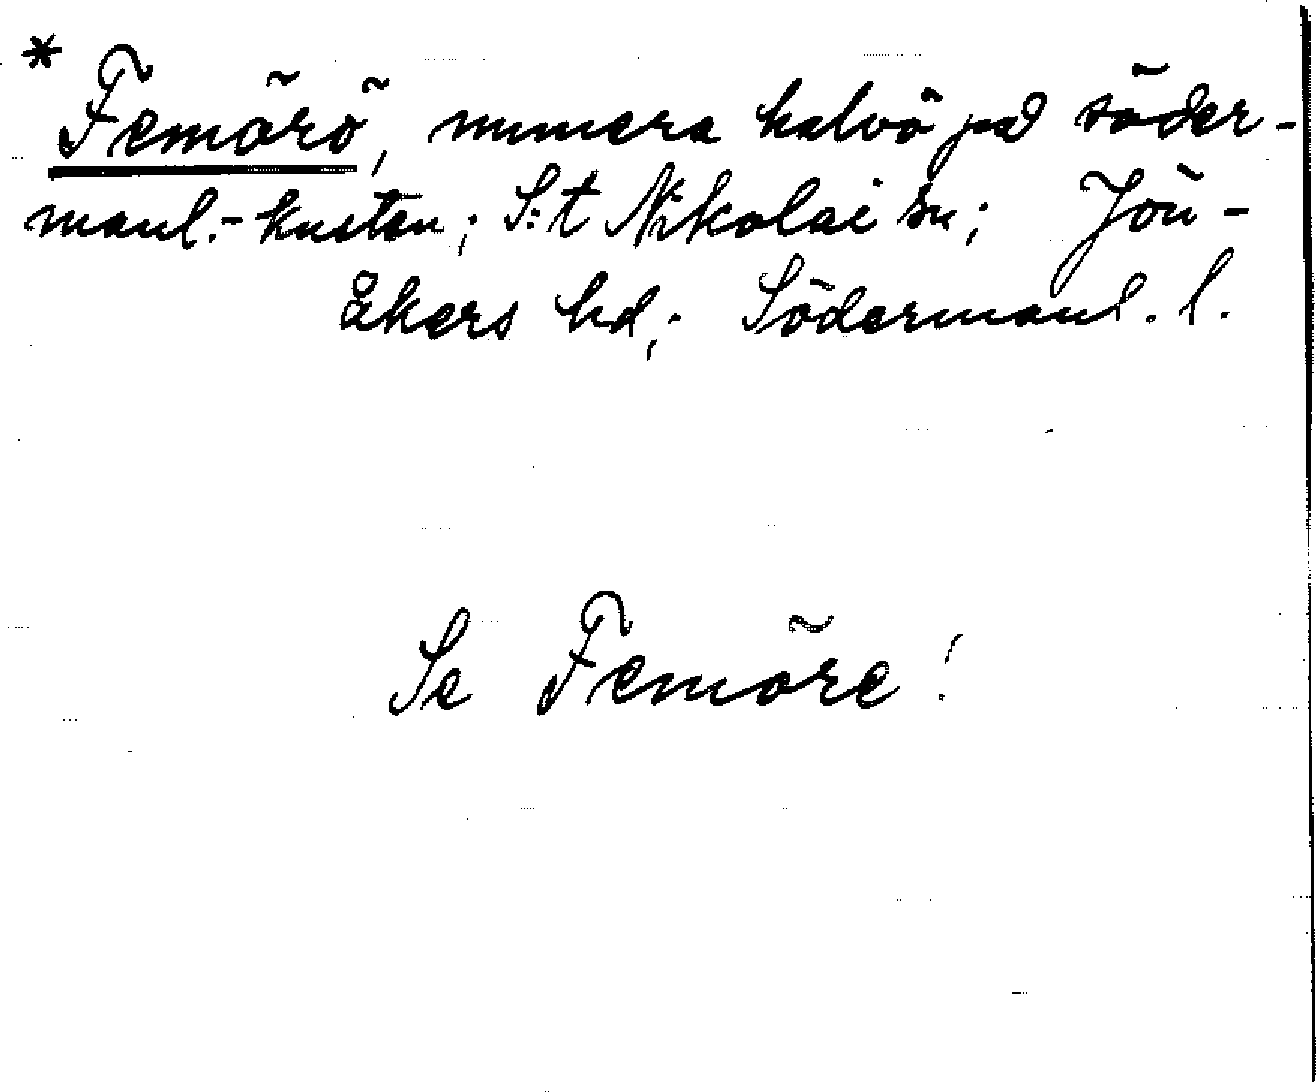 * Femörö, numera halvö på söder-
manl.-kusten; S:t Nikolai sn; Jön-
åkers hd; Södermanl. l.
Se Femöre!